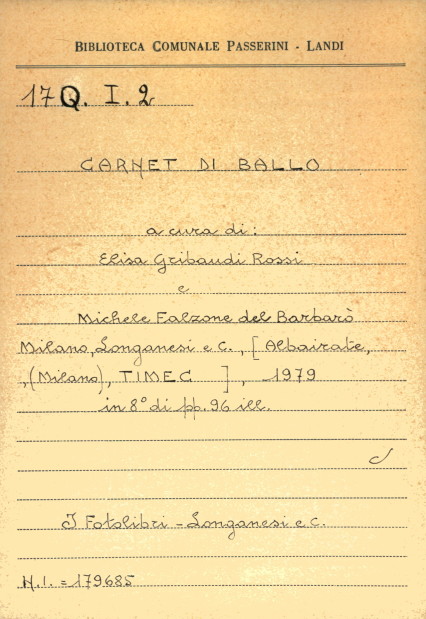 BIBLIOTECA COMUNALE PASSERINI - LANDI
17 Q. I. 2
CARNET DI BALLO
a cura di:
Elisa Gribaudi Rossi
e
Michele Falzone del Barbarò
Milano, Longanesi e C., [Albairate,
,(Milano), TIMEC ], - 1979
in 8° di pp. 96 ill.
I Fotolibri - Longanesi e C.
N.I. = 179685